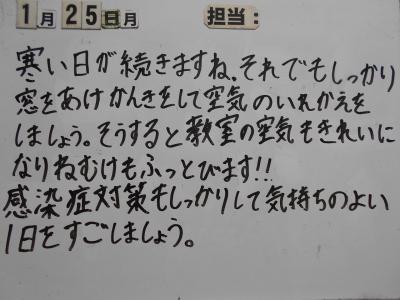 1月25日月 担当:
寒い日が続きますね。それでもしっかり
窓をあけかんきをして空気のいれかえを
しましょう。そうすると教室の空気もきれいに
なりねむけもふっとびます!!
感染症対策もしっかりして気持ちのよい
1日をすごしましょう。